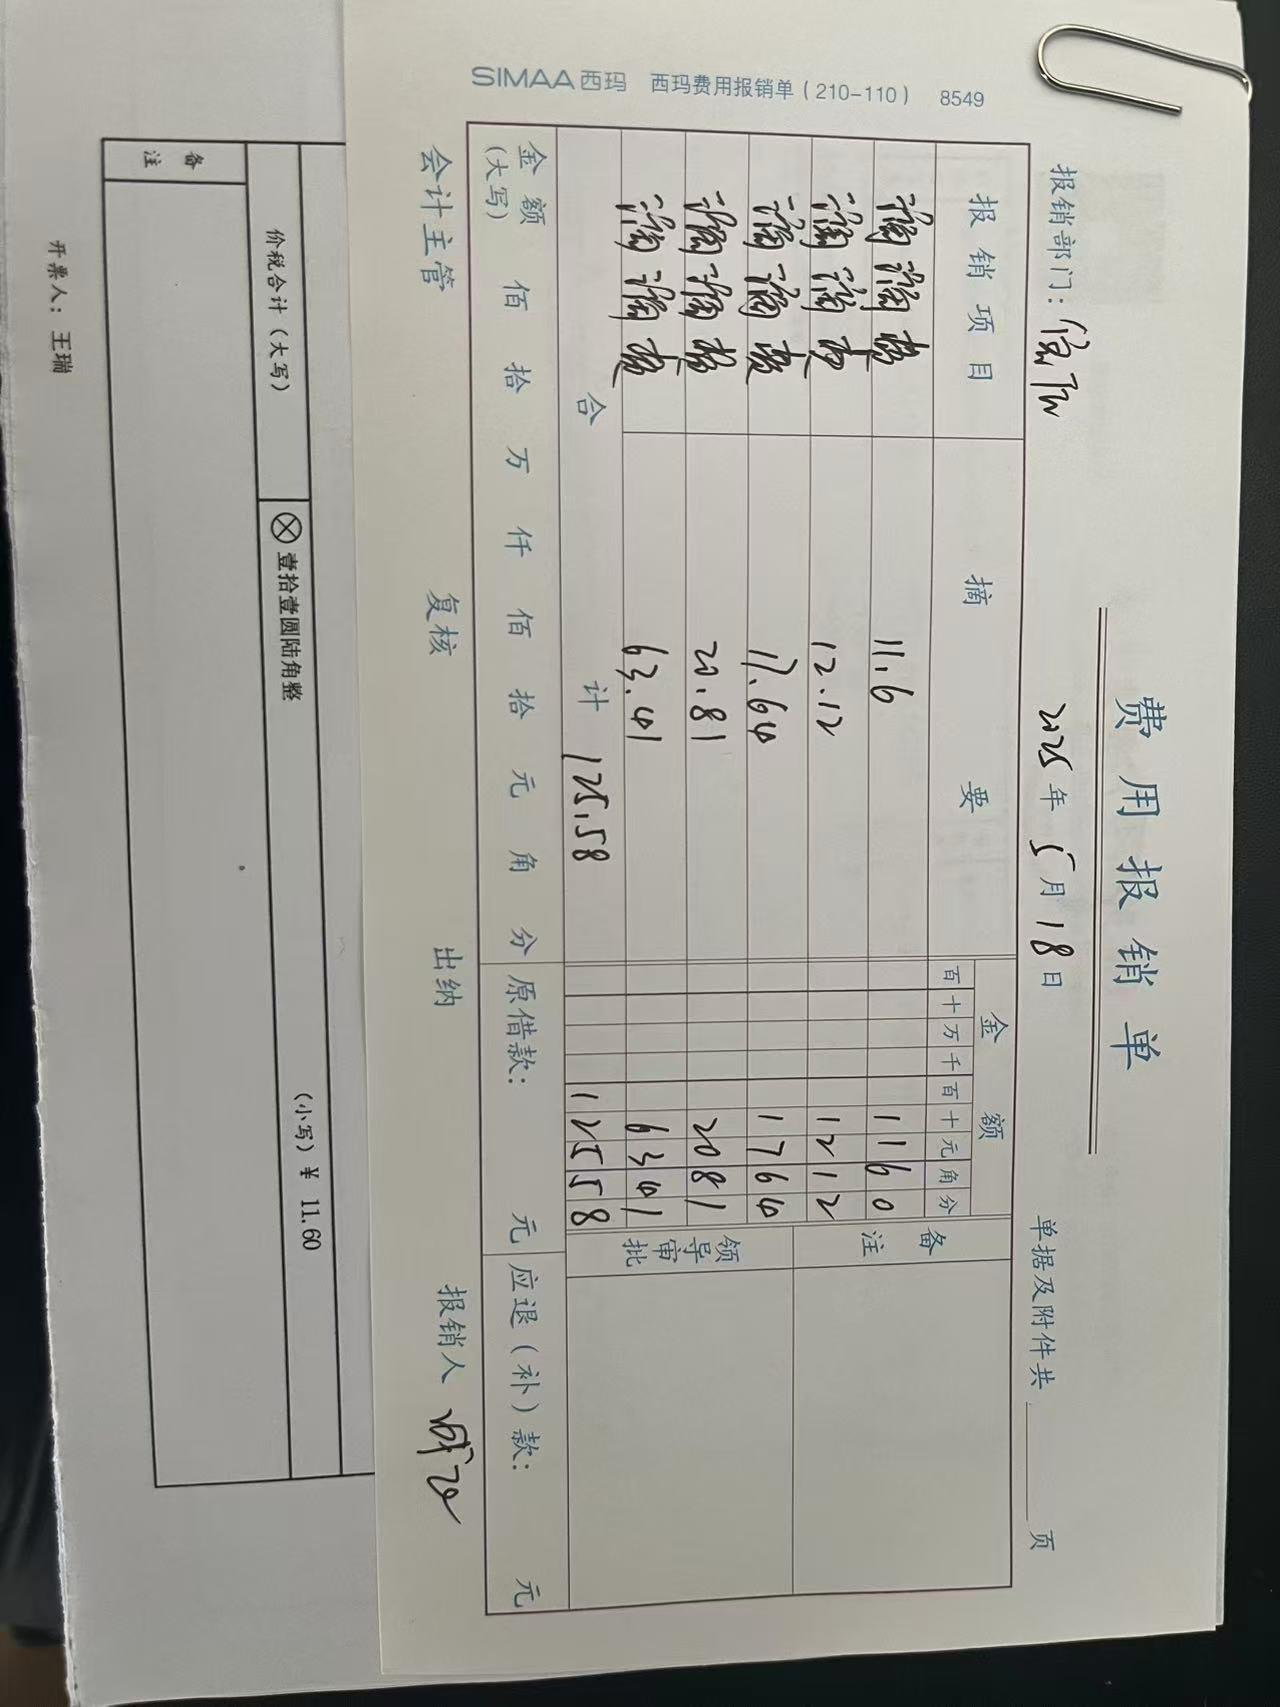 费用报销单
报销部门：
2025年5月18日
单据及附件共 页
报销项目 摘要 金额 备注
百十万千百十元角分
费 11.6 1160
费 12.12 1212
费 17.64 1764
费 20.81 2081
费 63.41 6341
领导审批
合计 125.58 12558
金额（大写） 佰 拾 万 仟 佰 拾 元 角 分 原借款： 元 应退（补）款： 元
会计主管 复核 出纳 报销人
SIMAA西玛 西玛费用报销单（210-110） 8549
价税合计（大写） ⊗壹拾壹圆陆角整 （小写）¥ 11.60
备注
开票人：王瑞